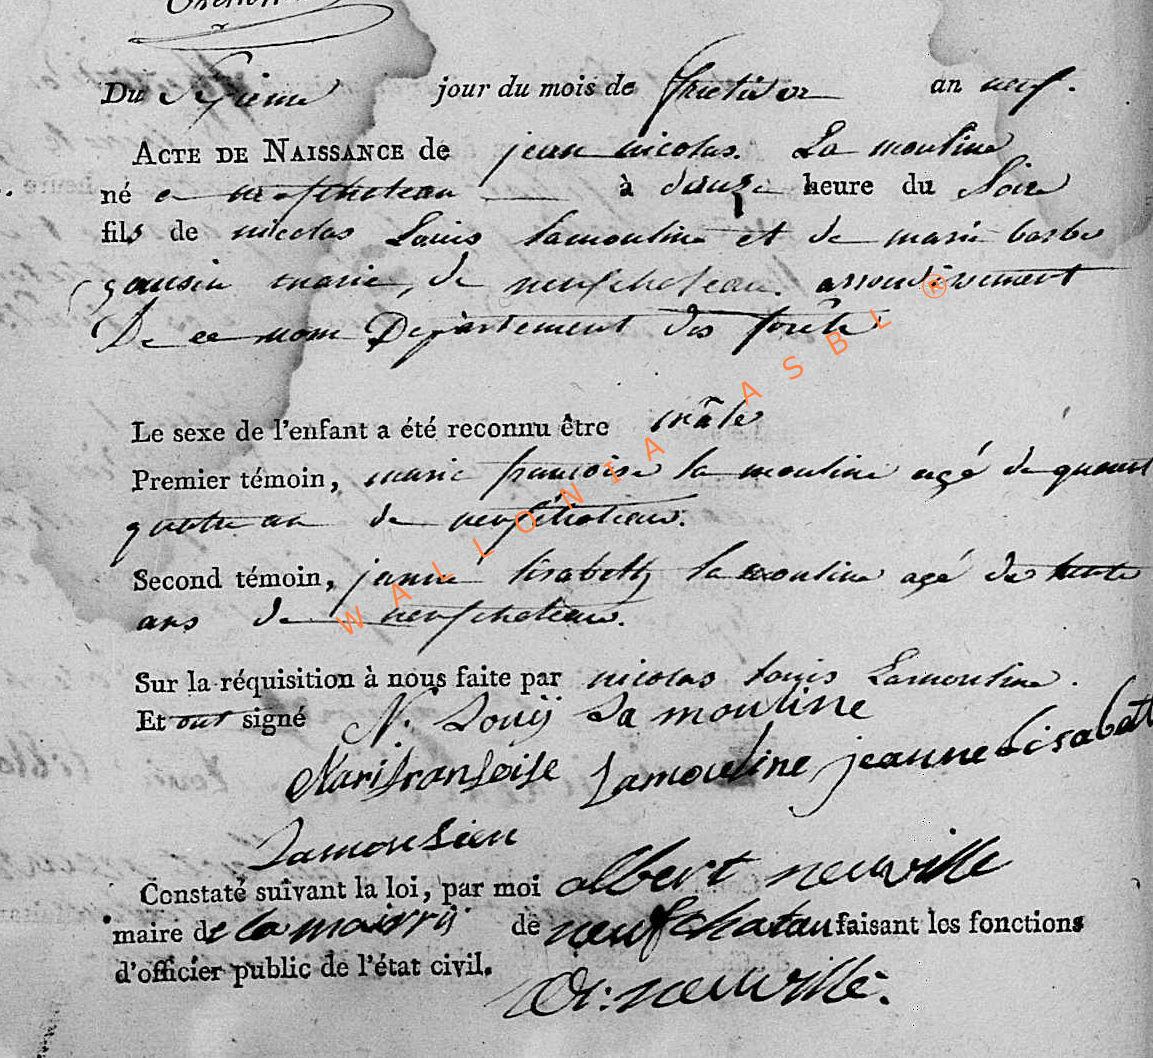 Du jour du mois de fructidor an neuf.
ACTE DE NAISSANCE de jean nicolas. La mouline
né a neufchateau à heure du Soir
fils de nicolas Louis Lamouline et de marie barbe
marie, de neufchateau. arrondissement
De ce nom Departement des forêts
Le sexe de l'enfant a été reconnu être mâle
Premier témoin, marie francoise la mouline agé de
quatre an de neufchateau.
Second témoin, lisabeth la mouline agé de trente
ans de neufchateau.
Sur la réquisition à nous faite par nicolas louis Lamouline.
Et ont signé N. Louÿ La mouline
Lamouline jeanne Lisabett
Constaté suivant la loi, par moi albert neuville
maire de la de neufchatau faisant les fonctions
d'officier public de l'état civil. neuville.
WALLONIA ASBL ®